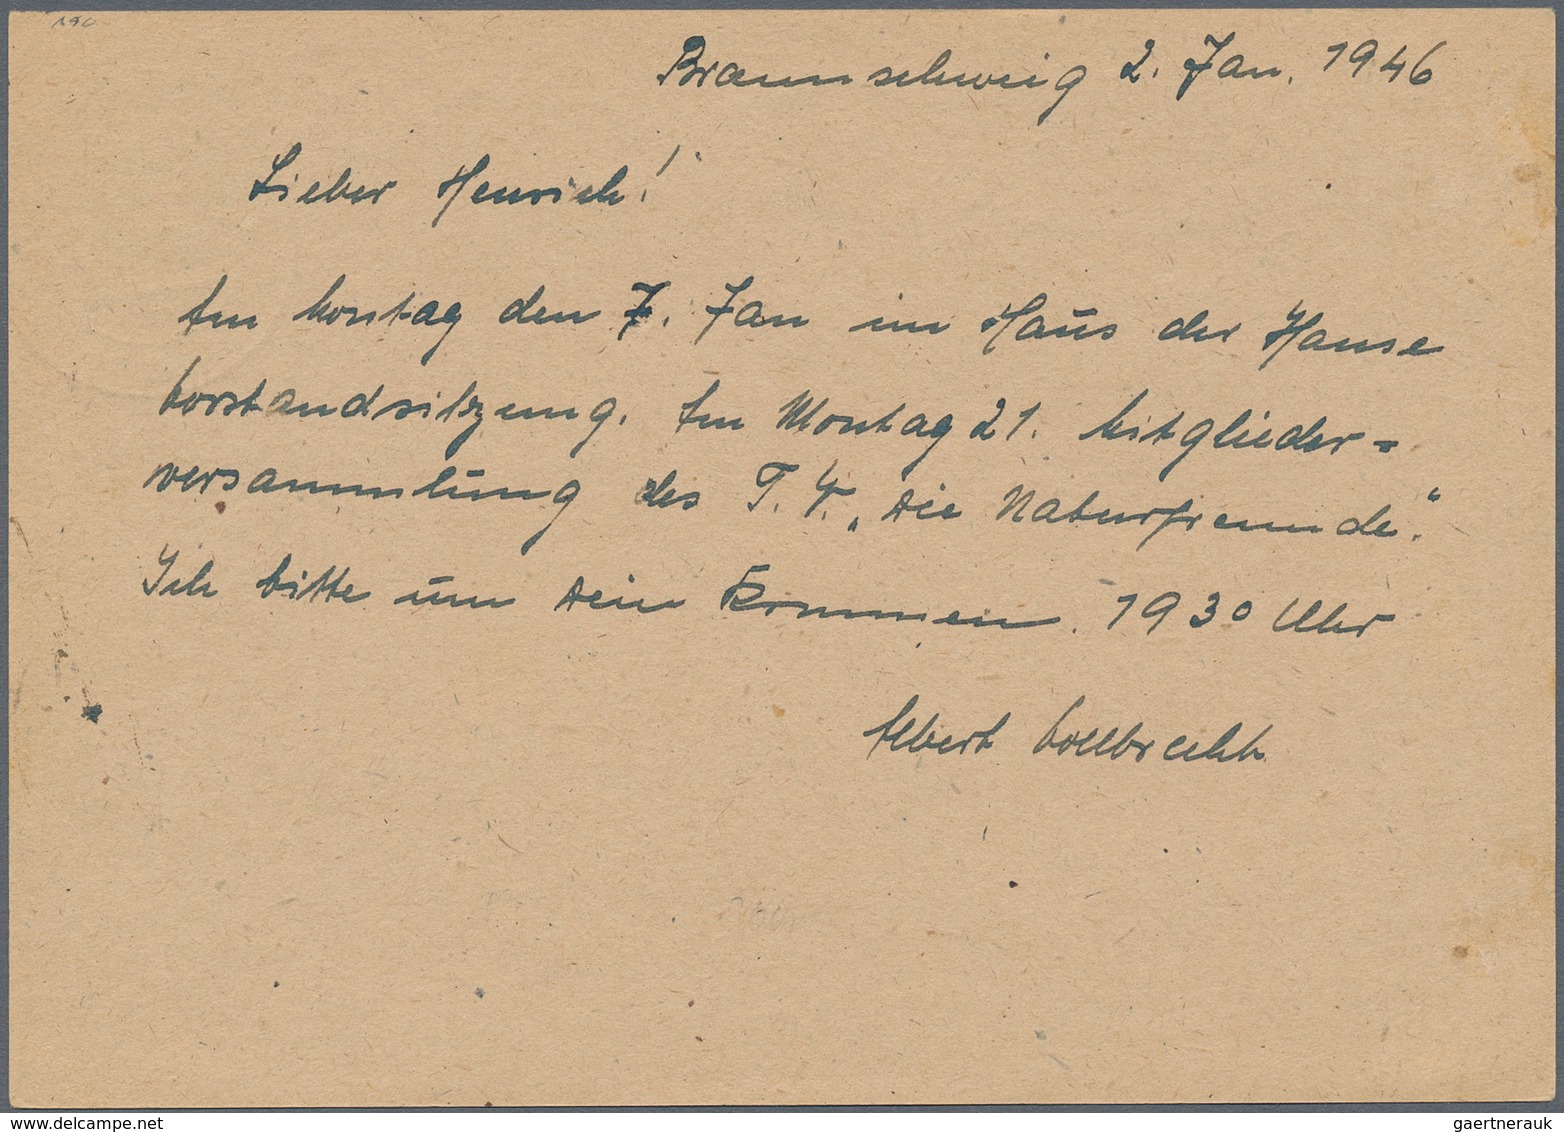 190
Braunschweig 2. Jan. 1946
Lieber Heinrich!
Am Montag den 7. Jan im Haus der Hanse
Vorstandsitzung. Am Montag 21. Mitglieder=
versammlung des T. V. „Die Naturfreunde".
Ich bitte um Dein Kommen. 1930 Uhr
Albert Vollbrecht
gaertnerauk